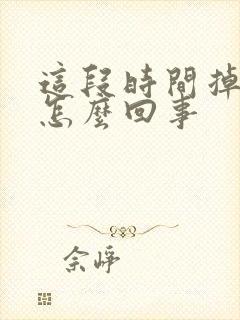 這段時間掉
怎麼回事
佘崢